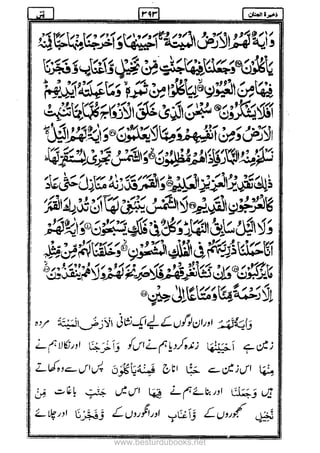 ذخیرة الجنان ۳۹۳ یٰسٓ
وَاٰيَةٌ لَّهُمُ الْاَرْضُ الْمَيْتَةُ ۚ اَحْيَيْنٰهَا وَاَخْرَجْنَا مِنْهَا حَبًّا فَمِنْهُ
يَاْكُلُوْنَ وَجَعَلْنَا فِيْهَا جَنّٰتٍ مِّنْ نَّخِيْلٍ وَّاَعْنَابٍ وَّفَجَّرْنَا
فِيْهَا مِنَ الْعُيُوْنِ لِيَاْكُلُوْا مِنْ ثَمَرِهٖ وَمَا عَمِلَتْهُ اَيْدِيْهِمْ
اَفَلَا يَشْكُرُوْنَ سُبْحٰنَ الَّذِيْ خَلَقَ الْاَزْوَاجَ كُلَّهَا مِمَّا تُنْۢبِتُ
الْاَرْضُ وَمِنْ اَنْفُسِهِمْ وَمِمَّا لَا يَعْلَمُوْنَ وَاٰيَةٌ لَّهُمُ الَّيْلُ ۚ
نَسْلَخُ مِنْهُ النَّهَارَ فَاِذَا هُمْ مُّظْلِمُوْنَ وَالشَّمْسُ تَجْرِيْ لِمُسْتَقَرٍّ لَّهَا ۭ
ذٰلِكَ تَقْدِيْرُ الْعَزِيْزِ الْعَلِيْمِ وَالْقَمَرَ قَدَّرْنٰهُ مَنَازِلَ حَتّٰى عَادَ
كَالْعُرْجُوْنِ الْقَدِيْمِ لَا الشَّمْسُ يَنْۢبَغِيْ لَهَآ اَنْ تُدْرِكَ الْقَمَرَ
وَلَا الَّيْلُ سَابِقُ النَّهَارِ ۭ وَكُلٌّ فِيْ فَلَكٍ يَّسْبَحُوْنَ وَاٰيَةٌ لَّهُمْ
اَنَّا حَمَلْنَا ذُرِّيَّتَهُمْ فِي الْفُلْكِ الْمَشْحُوْنِ وَخَلَقْنَا لَهُمْ مِّنْ مِّثْلِهٖ
مَا يَرْكَبُوْنَ وَاِنْ نَّشَاْ نُغْرِقْهُمْ فَلَا صَرِيْخَ لَهُمْ وَلَا هُمْ يُنْقَذُوْنَ
اِلَّا رَحْمَةً مِّنَّا وَمَتَاعًا اِلٰى حِيْنٍ
وَاٰيَةٌ لَّهُمُ اور ان لوگوں کے لیے ایک نشانی الْاَرْضُ الْمَيْتَةُ مردہ
زمین ہے اَحْيَيْنٰهَا زندہ کردیا ہم نے اس کو وَاَخْرَجْنَا اور نکالا ہم نے
مِنْهَا اس زمین سے حَبًّا اناج فَمِنْهُ يَاْكُلُوْنَ پس اس سے وہ کھاتے
ہیں وَجَعَلْنَا اور بنائے ہم نے فِيْهَا اس میں جَنّٰتٍ باغات مِّنْ
نَّخِيْلٍ کھجوروں کے وَّاَعْنَابٍ اور انگوروں کے وَّفَجَّرْنَا اور چلائے
www.besturdubooks.net